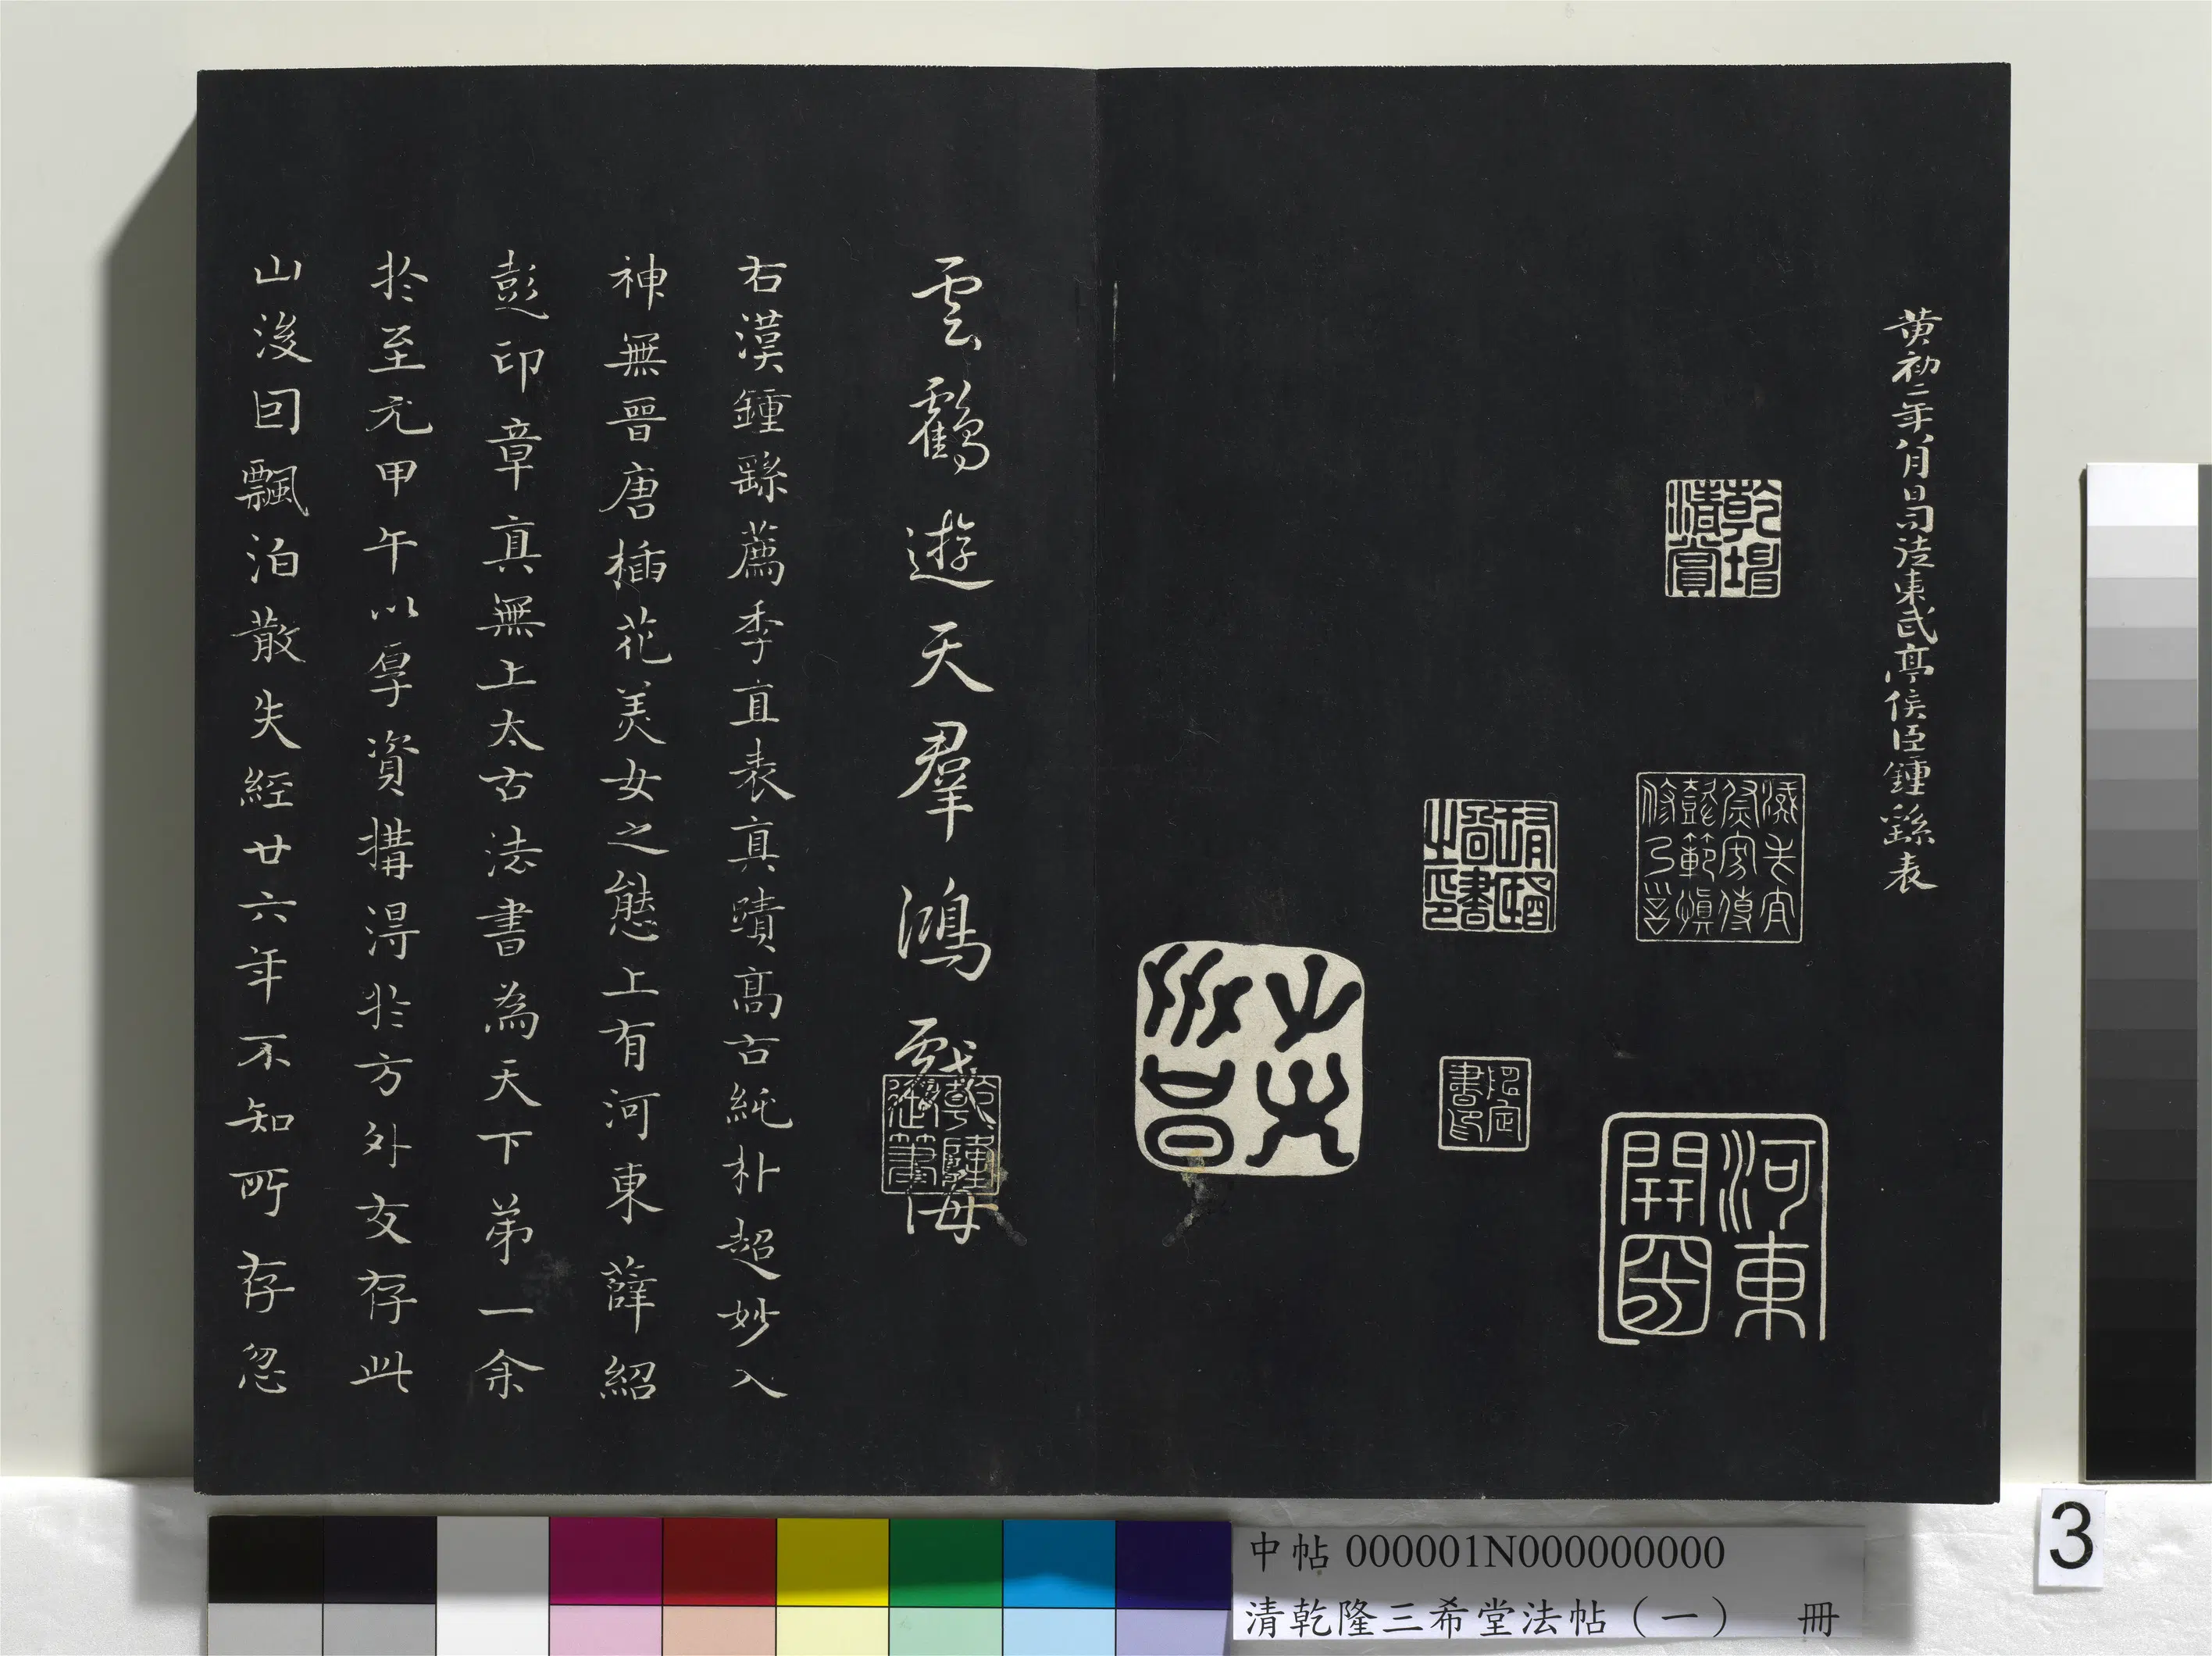 黃初二年八月日司徒東武亭侯臣鍾繇表
乾坤
清賞
河東
開國
紹定
書印
雲鶴遊天羣鴻戲海
乾隆
御筆
右漢鍾繇薦季直表真蹟高古純朴超妙入
神無晉唐插花美女之態上有河東薛紹
彭印章真無上太古法書為天下第一余
於至元甲午以厚資購得於方外友存此
山後回飄泊散失經廿六年不知所存忽
3
中帖 000001N000000000
清乾隆三希堂法帖（一） 冊